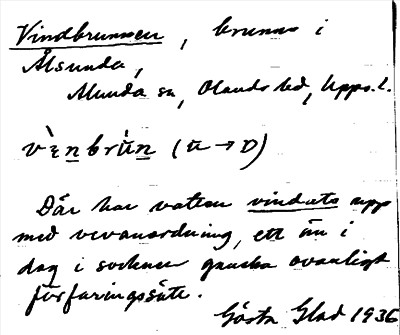 Vindbrunnen, brunn i
Ålsunda,
Alunda sn, Olands hd, Upps. l.
vɛ̀nbrùn (u → ʋ)
Där har vatten vindats upp
med vevanordning, ett än i
dag i socknen ganska ovanligt
förfaringssätt.
Gösta Glad 1936